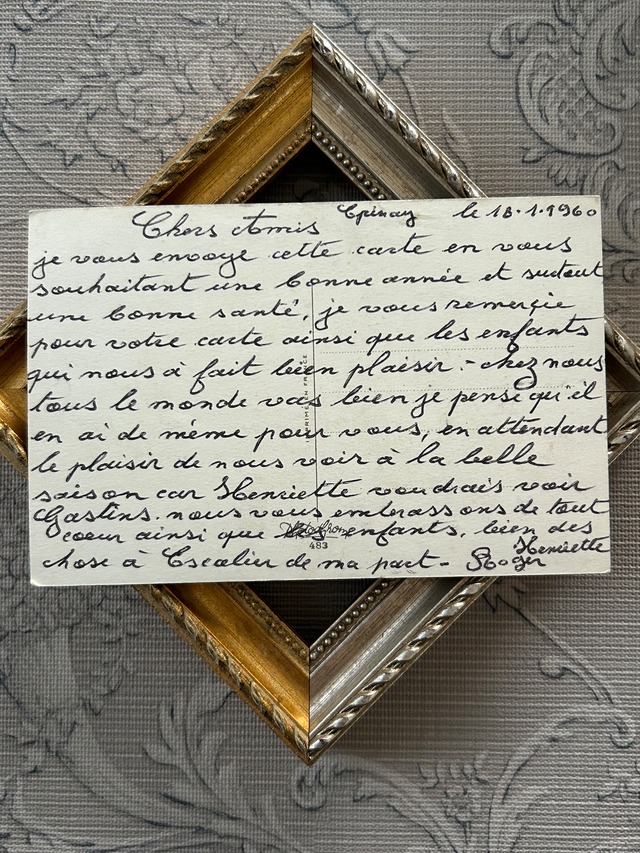 Epinay le 18.1.1960
Chers Amis
je vous envoye cette carte en vous
souhaitant une bonne année et surtout
une bonne santé, je vous remerçie
pour votre carte ainsi que les enfants
qui nous à fait bien plaisir - chez nous
tous le monde vas bien je pense qu'il
en ai de même pour vous, en attendant
le plaisir de nous voir à la belle
saison car Henriette voudrais voir
Gastins. nous vous embrassons de tout
coeur ainsi que enfants, bien des
chose à Escalier de ma part - Roger
Henriette
IMPRIMÉ EN FRANCE
483